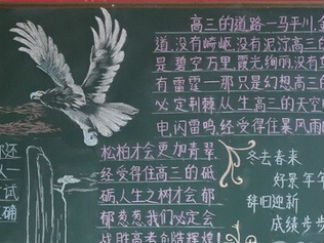 高三的道路一马平川,金
道,没有崎岖,没有泥泞高三的
是碧空万里,霞光绚丽没有
有雷霆—那只是幻想高三
必定荆棘,从生高三的天空
电闪雷鸣,经受得住暴风雨
松柏才会更加青翠
经受得住高三的砥
砺人生之树才会郁
郁葱葱我们必定会
战胜高考创辉煌!
还
人一
试
确
冬去春来
好景年年
辞旧迎新
成绩步步